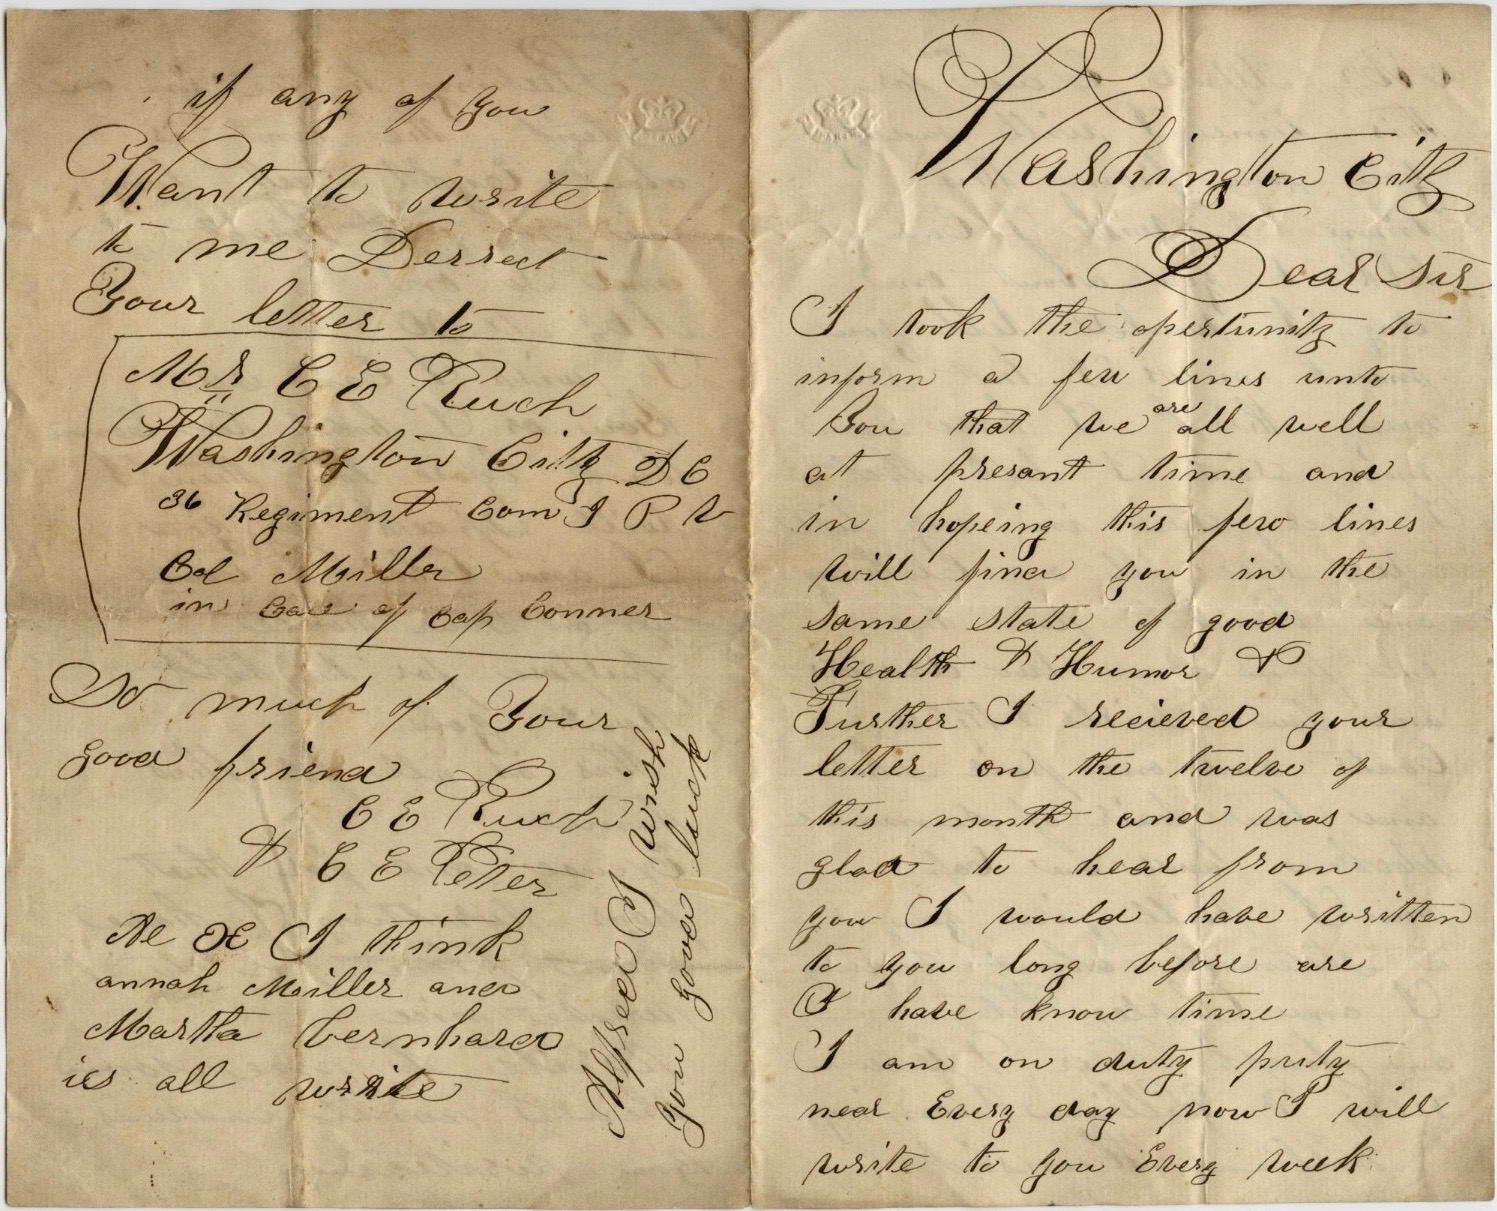 Washington City
Dear Sir
I took the opertunity to
inform a few lines unto
You that we are all well
at presant time and
in hopeing this few lines
will find you in the
same state of good
Health & Humor &
Further I recieved your
letter on the twelve of
this month and was
glad to hear from
you I would have written
to you long before are
I have know time
I am on duty prity
near Every day now I will
write to you Every week
if any of you
Want to write
to me Derrect
Your letter to
Mr C E Ruch
Washington City D C
36 Regiment Com I P V
Col Miller
in Care of Cap Conner
So much of Your
good friend
C E Ruch
& C E Peter
I think
annah Miller and
Martta bernhard
is all write
Alfred I wish
you good luck